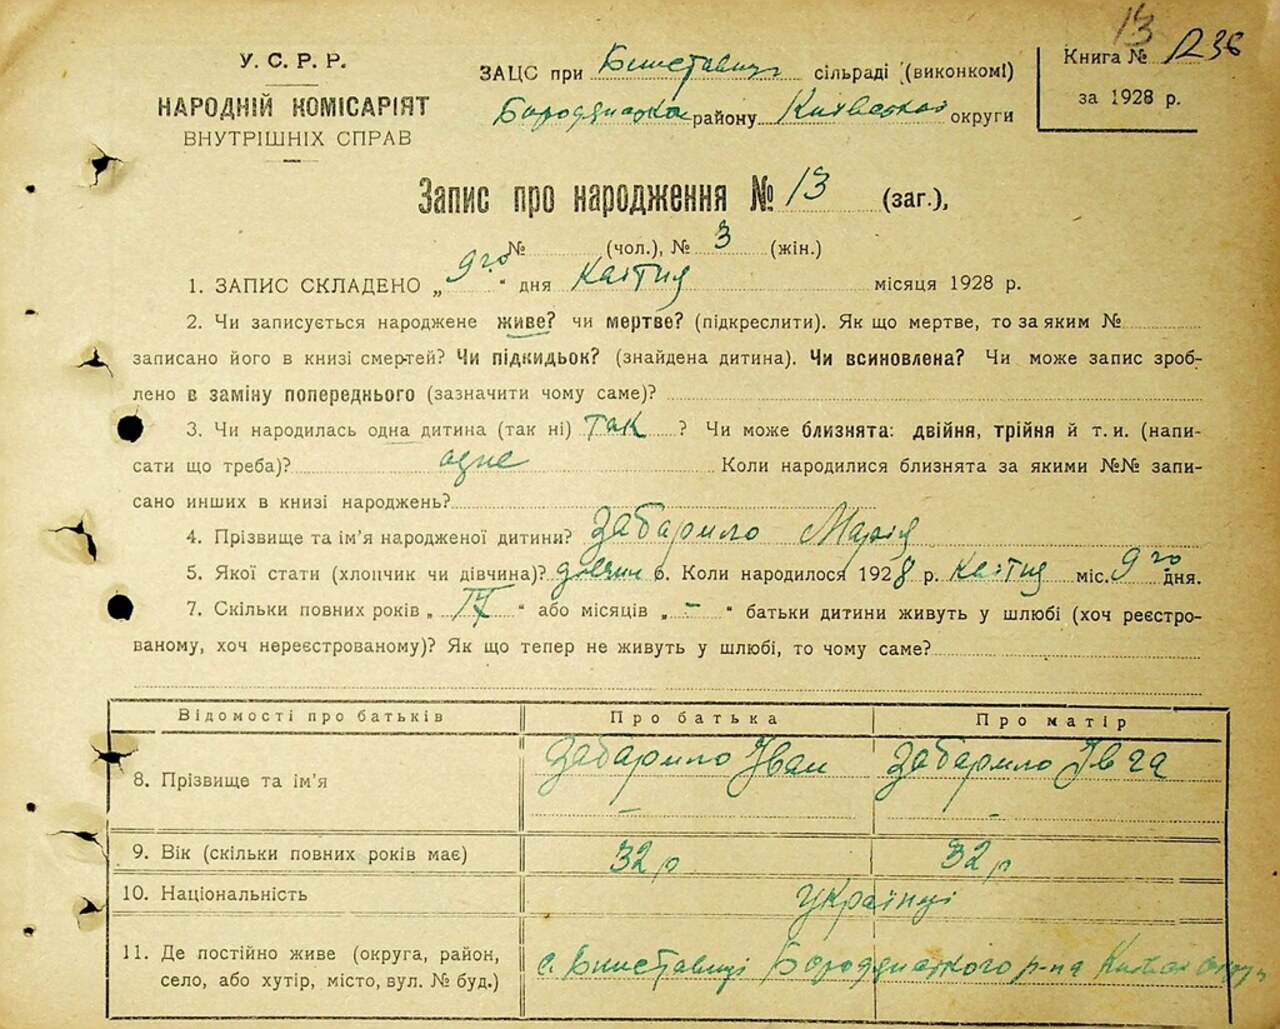 13
У. С. Р. Р.
НАРОДНІЙ КОМІСАРІЯТ
ВНУТРІШНІХ СПРАВ
ЗАЦС при сільраді (виконкомі)
району округи
Книга №
за 1928 р.
Запис про народження № 13 (заг.),
№ (чол.), № 3 (жін.)
1. ЗАПИС СКЛАДЕНО „9го“ дня Квітня місяця 1928 р.
2. Чи записується народжене живе? чи мертве? (підкреслити). Як що мертве, то за яким №
записано його в книзі смертей? Чи підкидьок? (знайдена дитина). Чи всиновлена? Чи може запис зроб-
лено в заміну попереднього (зазначити чому саме)?
3. Чи народилась одна дитина (так ні) так ? Чи може близнята: двійня, трійня й т. и. (напи-
сати що треба)? одне Коли народилися близнята за якими №№ запи-
сано инших в книзі народжень?
4. Прізвище та ім’я народженої дитини? Забарило Марія
5. Якої стати (хлопчик чи дівчина)? 6. Коли народилося 1928 р. Квітня міс. 9го дня.
7. Скільки повних років „ “ або місяців „ - “ батьки дитини живуть у шлюбі (хоч реєстро-
ваному, хоч нереєстрованому)? Як що тепер не живуть у шлюбі, то чому саме?
Відомості про батьків Про батька Про матір
8. Прізвище та ім’я Забарило Іван Забарило Івга
9. Вік (скільки повних років має) 32 р 32 р
10. Національність Українці
11. Де постійно живе (округа, район,
село, або хутір, місто, вул. № буд.) с. Бородянского р-на